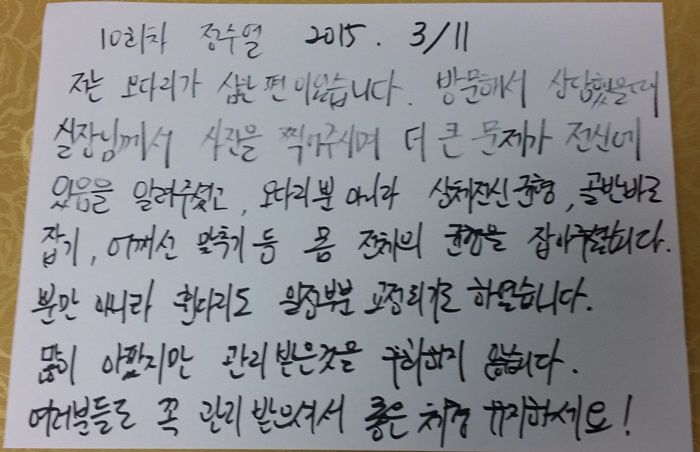 10회차 정수열 2015. 3/11
저는 오다리가 심한 편이었습니다. 방문해서 상담했을때
실장님께서 사진을 찍어주시며 더 큰 문제가 전신에
있음을 알려주셨고, 오다리뿐 아니라 상체전신 균형, 골반바로
잡기, 어깨선 맞추기 등 몸 전체의 균형을 잡아주셨습니다.
뿐만 아니라 휜다리도 일정부분 교정되기도 하였습니다.
많이 아팠지만 관리받은것을 후회하지 않습니다.
여러분들도 꼭 관리 받으셔서 좋은 체형 유지하세요!